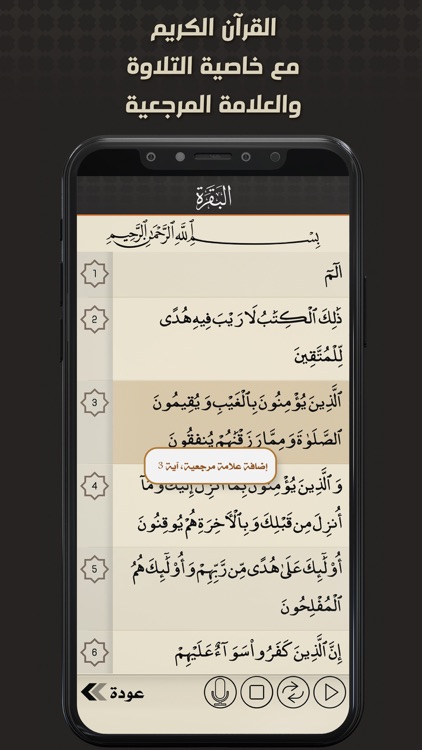 القرآن الكريم
مع خاصية التلاوة
والعلامة المرجعية
البقرة
بِسْمِ اللَّهِ الرَّحْمَٰنِ الرَّحِيمِ
الٓمٓ
1
ذَٰلِكَ ٱلْكِتَٰبُ لَا رَيْبَ فِيهِ هُدًى
2
لِّلْمُتَّقِينَ
ٱلَّذِينَ يُؤْمِنُونَ بِٱلْغَيْبِ وَيُقِيمُونَ
3
ٱلصَّلَوٰةَ وَمِمَّا رَزَقْنَٰهُمْ يُنفِقُونَ
إضافة علامة مرجعية، آية 3
وَٱلَّذِينَ يُؤْمِنُونَ بِمَآ أُنزِلَ إِلَيْكَ وَمَآ
4
أُنزِلَ مِن قَبْلِكَ وَبِٱلْأَخِرَةِ هُمْ يُوقِنُونَ
أُوْلَٰٓئِكَ عَلَىٰ هُدًى مِّن رَّبِّهِمْ وَأُوْلَٰٓئِكَ هُمُ
5
ٱلْمُفْلِحُونَ
إِنَّ ٱلَّذِينَ كَفَرُوا۟ سَوَآءٌ عَلَيْهِمْ
6
عودة